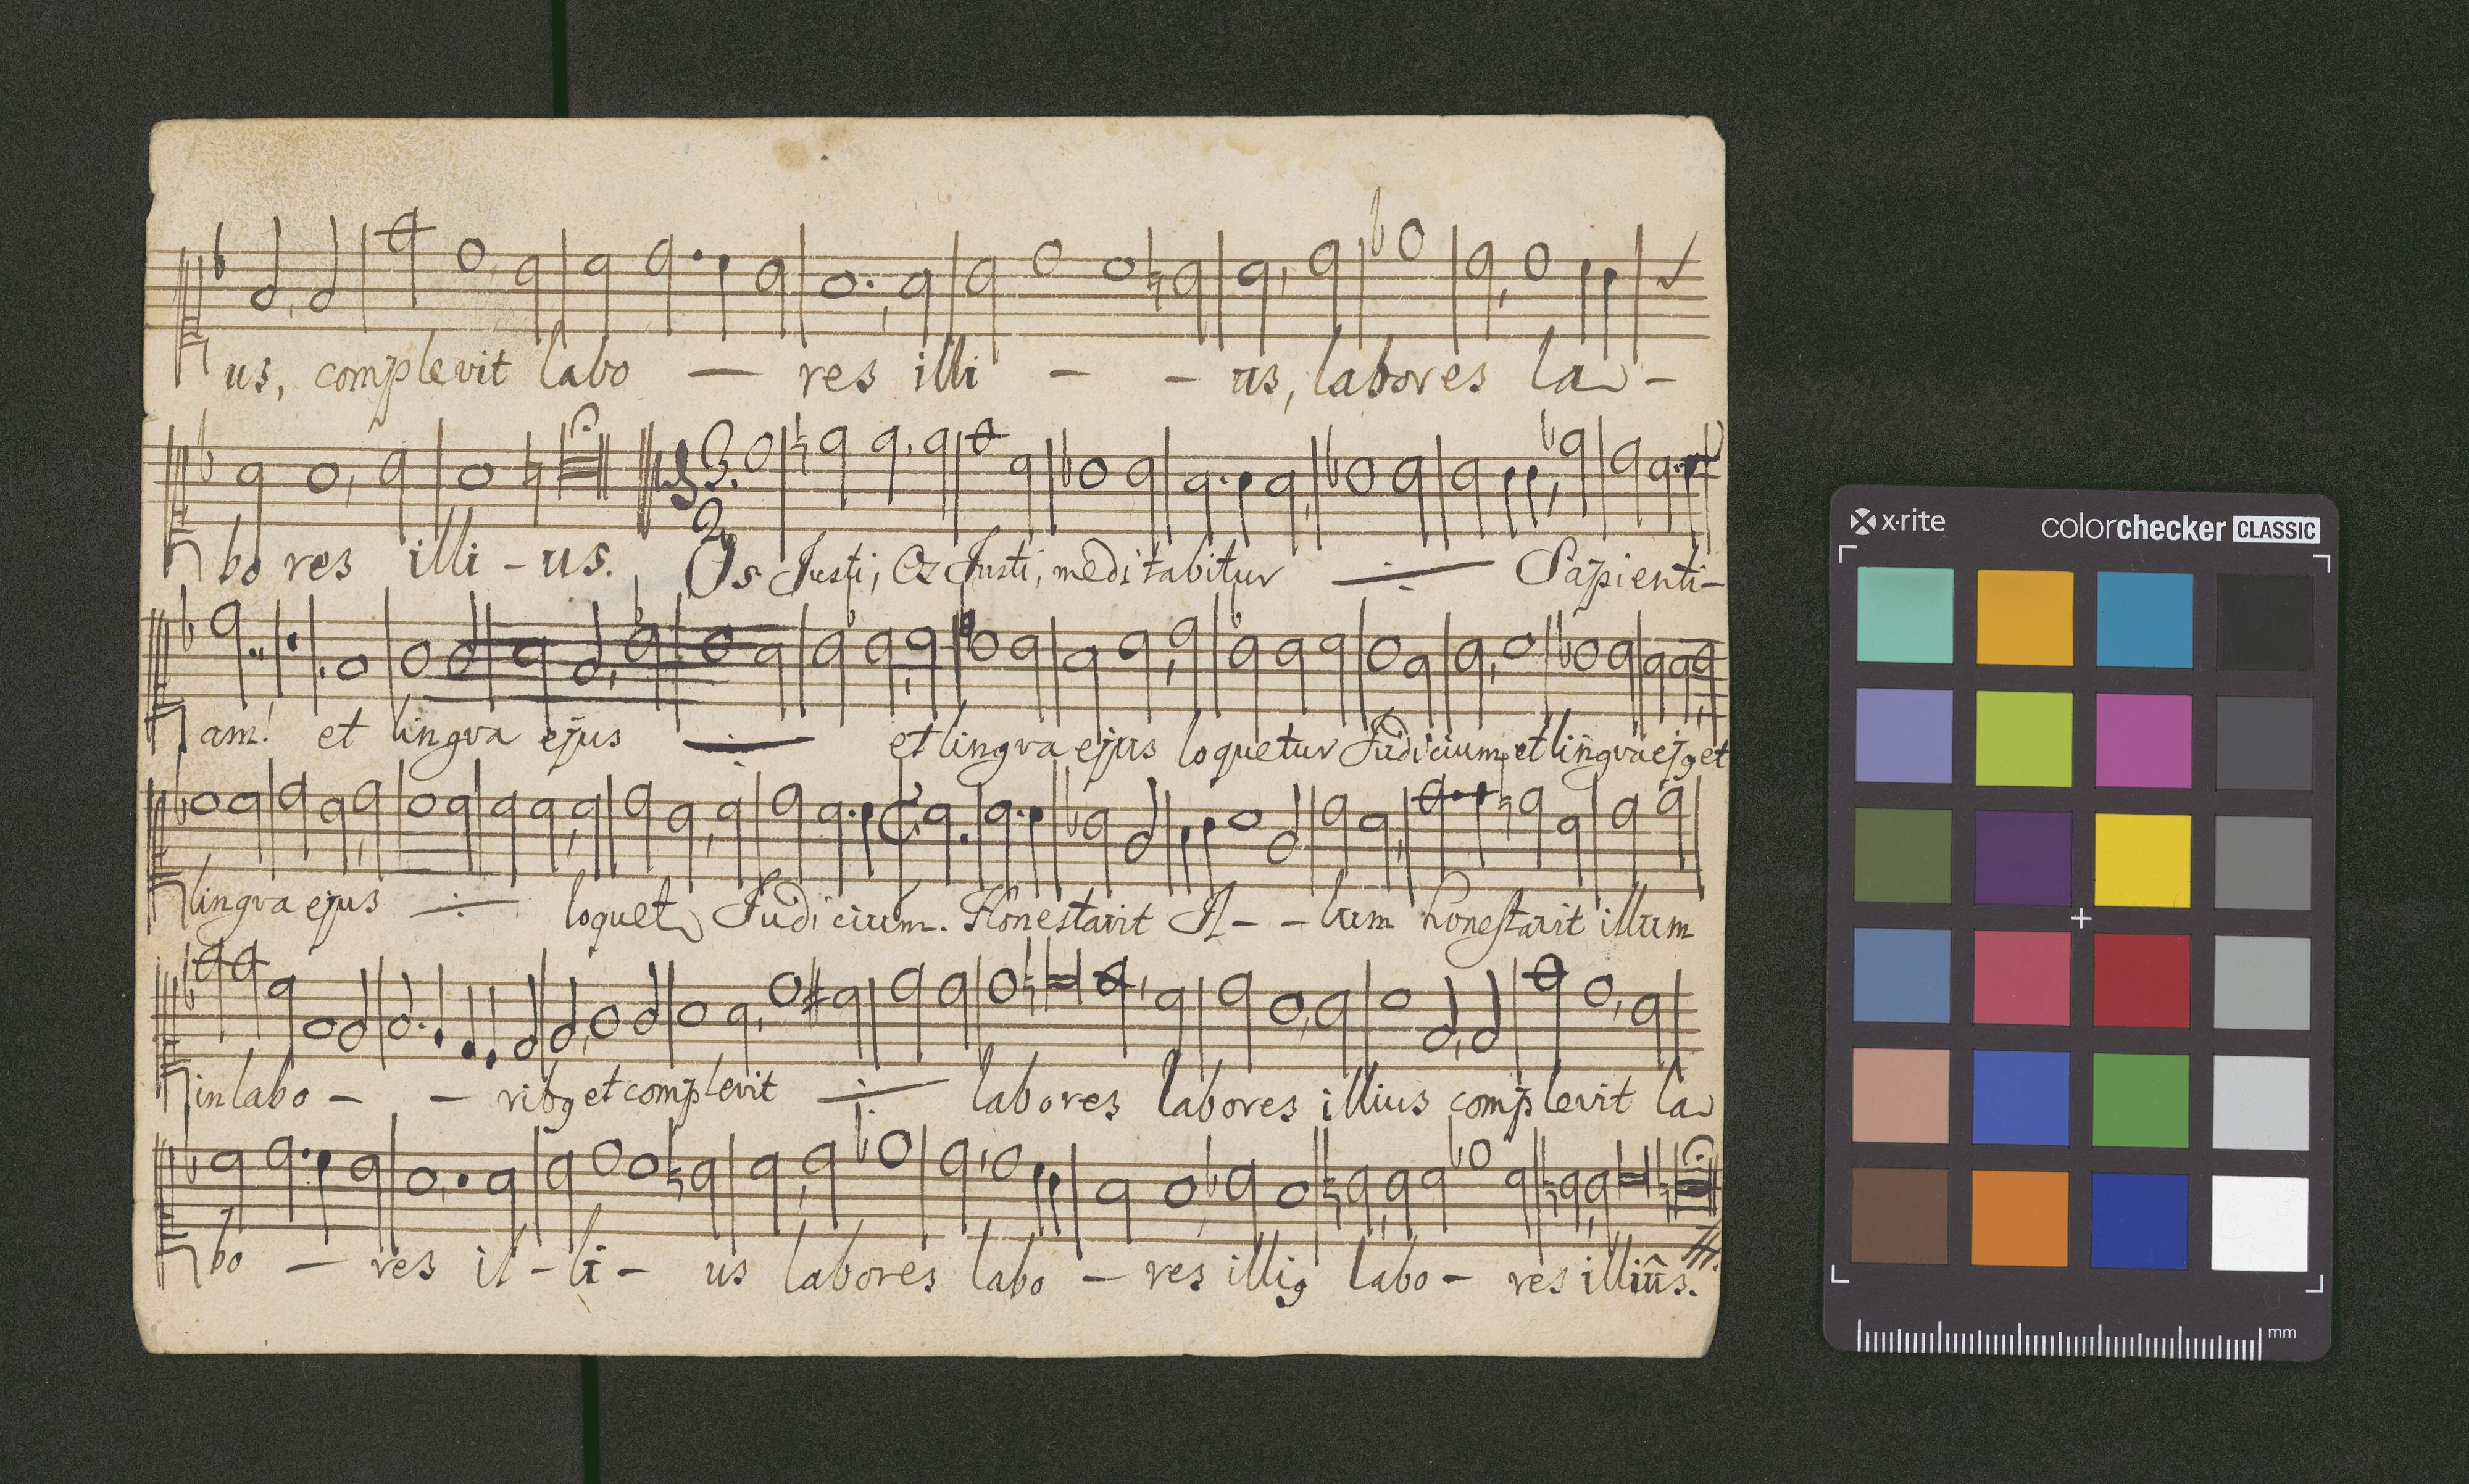 us, complevit labo — res illi - - us, labores la -
bo res illi - us. 3. 2 Os Justi, Os Justi, meditabitur Sapienti-
am! et lingva ejus et lingva ejus loquetur Judicium et lingva ej9 et
lingva ejus loquet Judicium. Honestavit Il - - lum honestavit illum
in labo - - rib9 et complevit labores labores illius complevit la
bo — res il - li - us labores labo — res illi9 labo - res illiûs.
x·rite colorchecker CLASSIC
mm